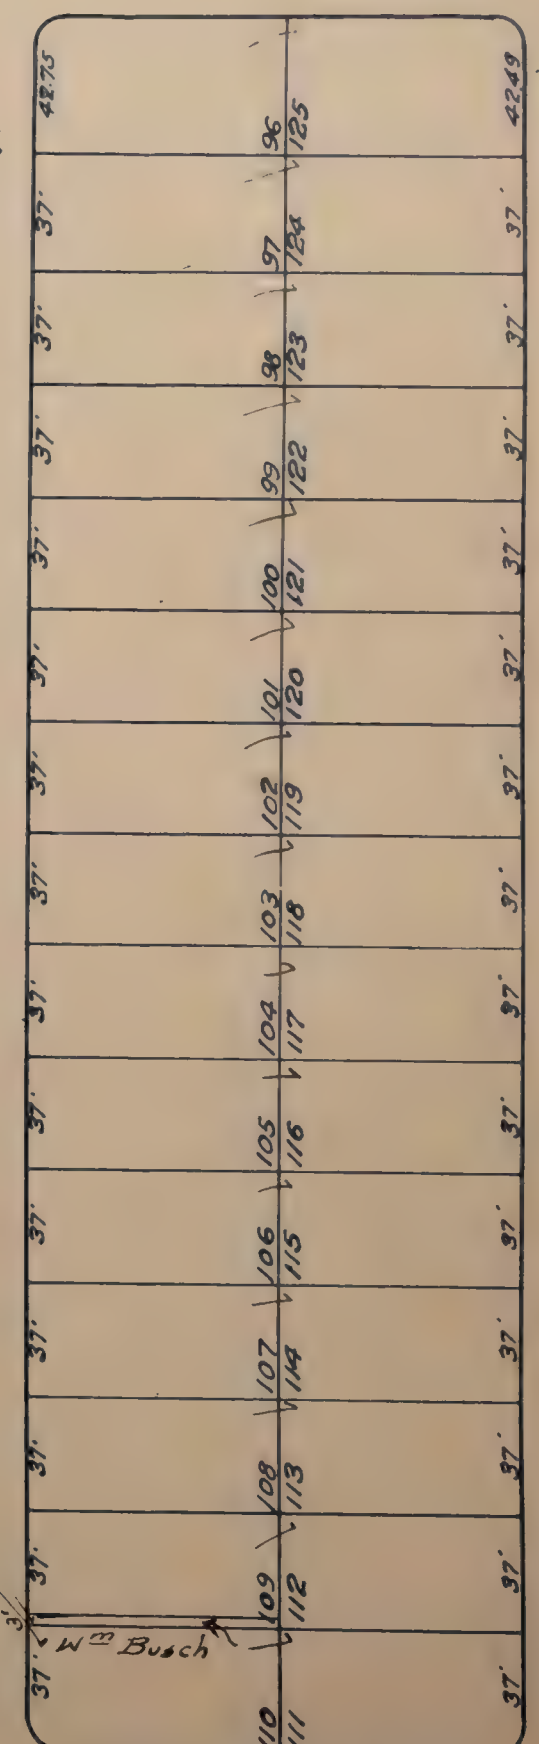 42.75 96 125 42.49
37' 97 124 37'
37' 98 123 37'
37' 99 122 37'
37' 100 121 37'
37' 101 120 37'
37' 102 119 37'
37' 103 118 37'
37' 104 117 37'
37' 105 116 37'
37' 106 115 37'
37' 107 114 37'
37' 108 113 37'
37' 109 112 37'
3'
Wm Busch
37' 110 111 37'